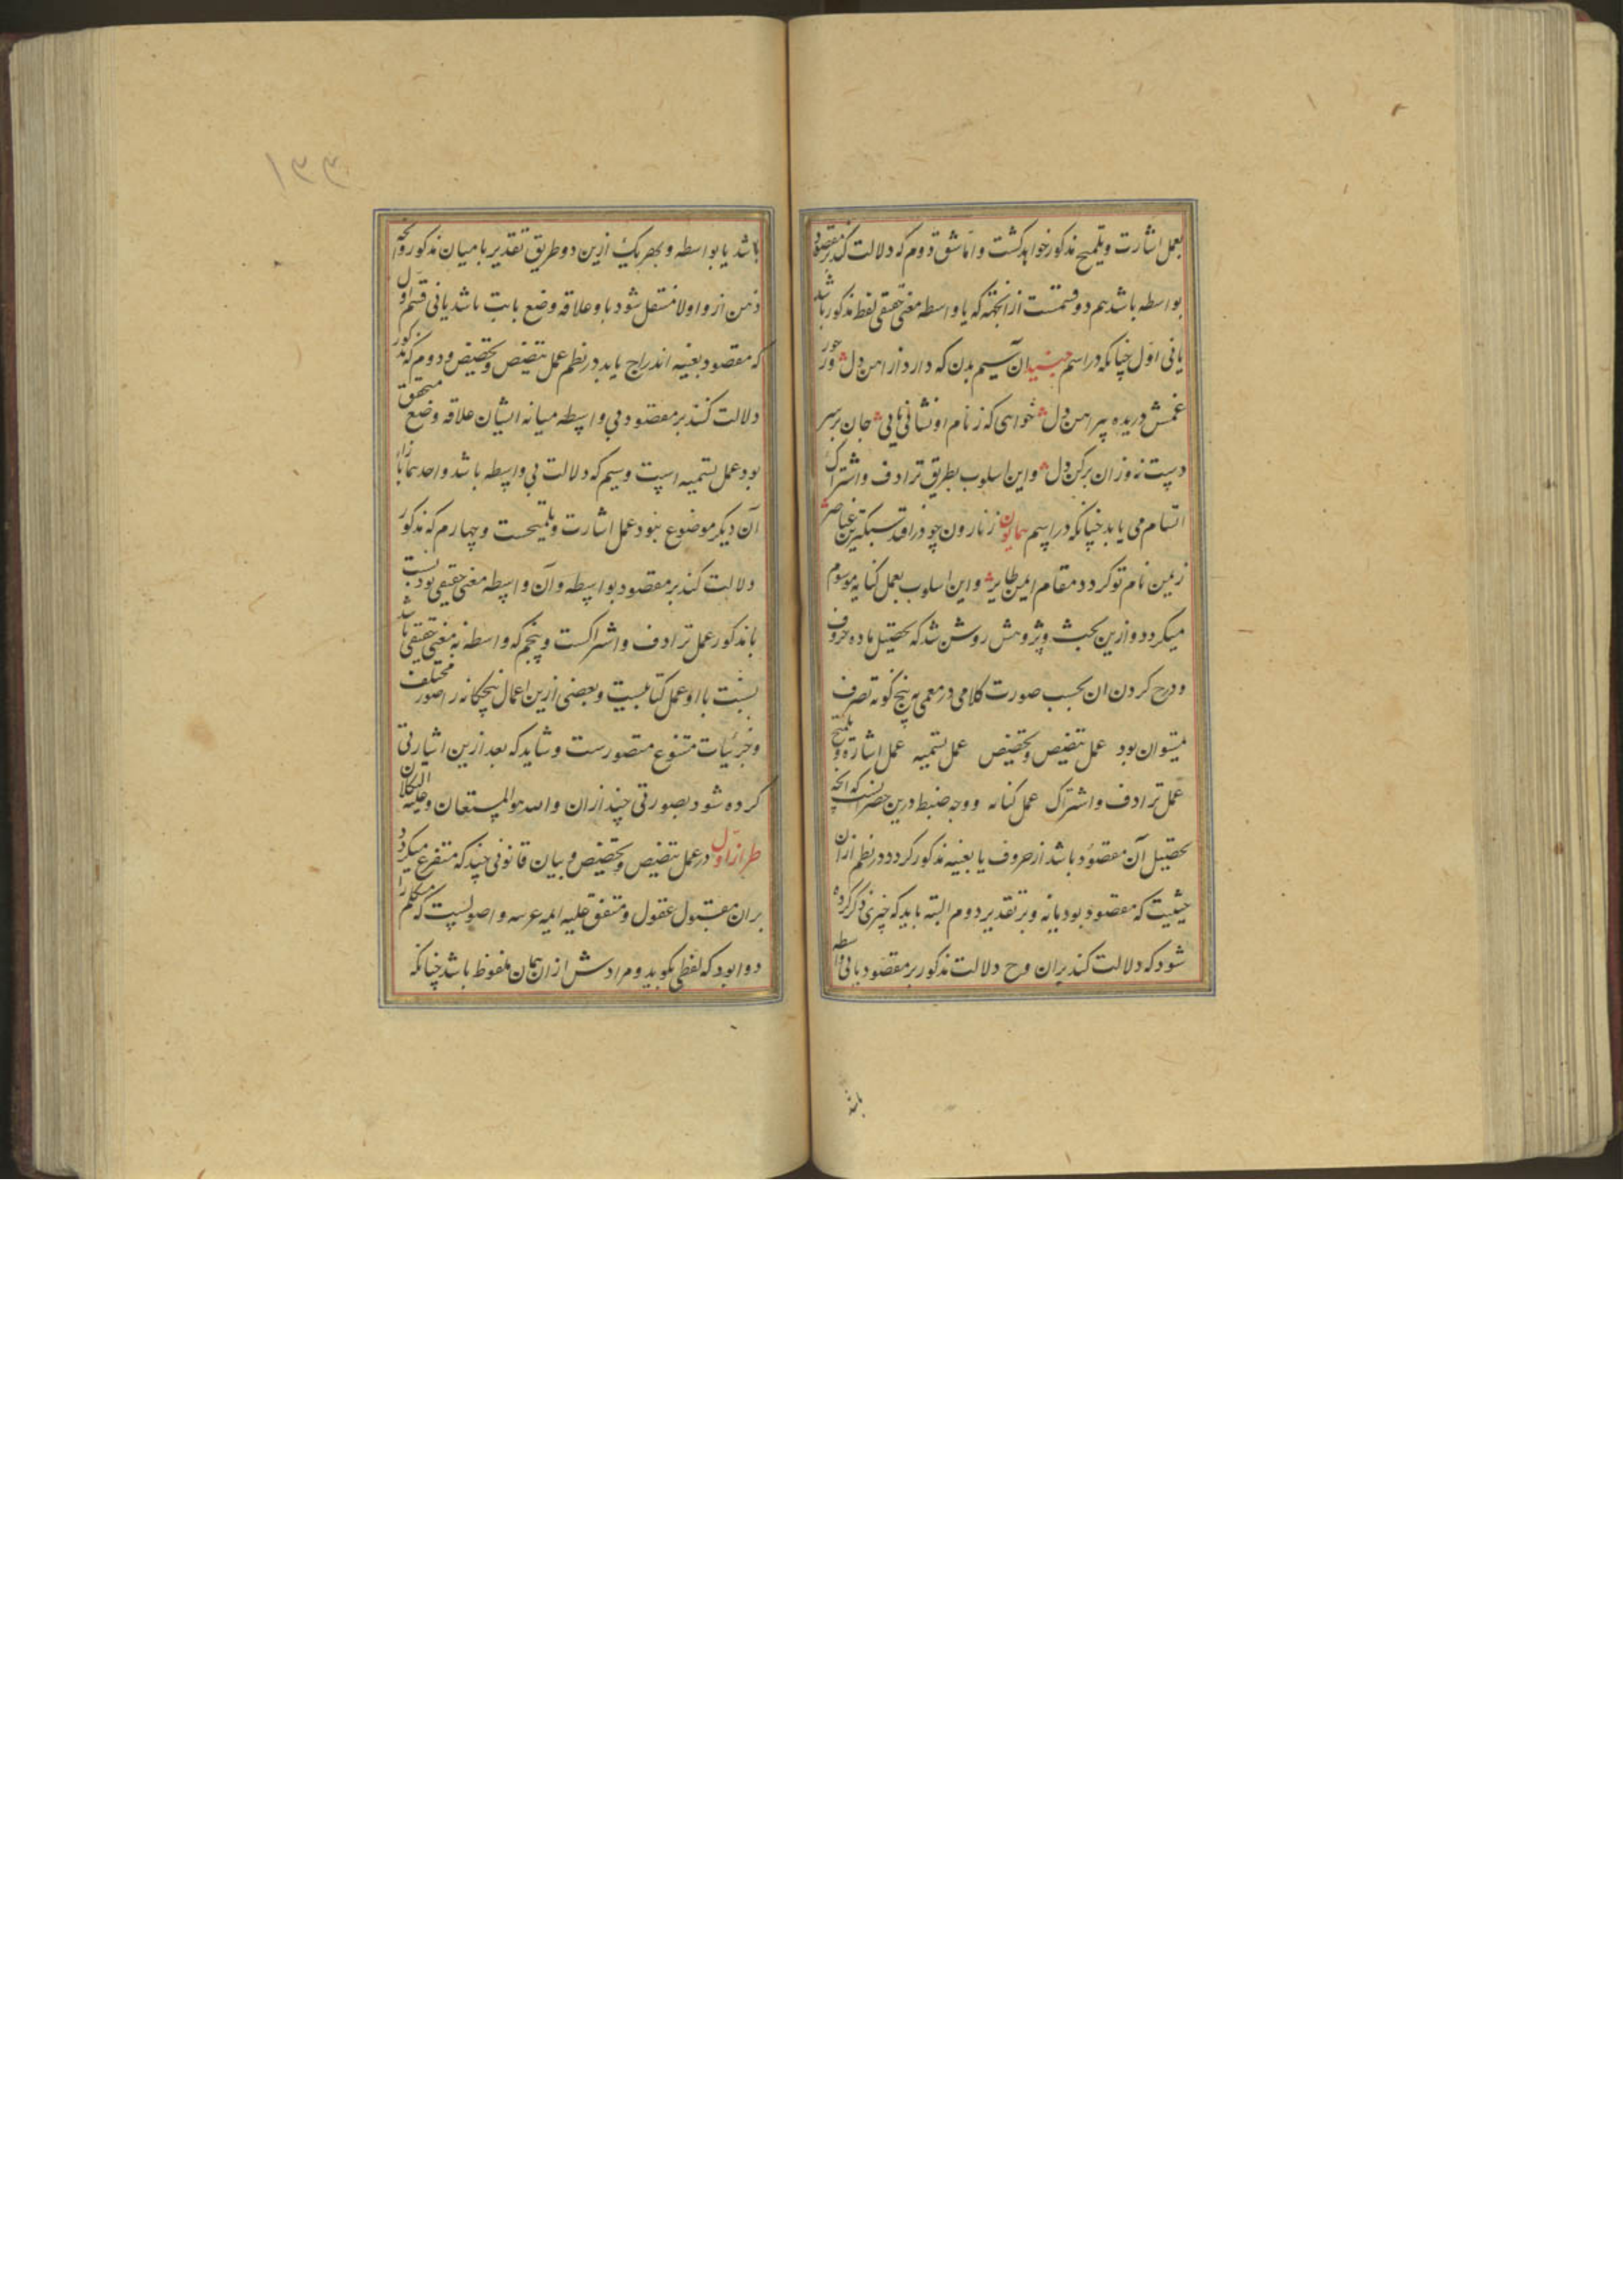 بعمل اشارت و تلمیح مذکور خواهد کشت و اما شق دوم که دلالت کند بر مقصود
بواسطه باشد هم دو قسمت از انجهة که یا واسطه معنی حقیقی لفظ مذکور باشد
یا نی اول چنانکه در اسم جنید ان سیم بدن که دارد از اهن دل وز
غمش دریده پیراهن دل خواهی که ز نام او نشانی یابی جان بر سر
دست نه وز ان برکن دل و این اسلوب بطریق ترادف و اشتراک
اتسام می یابد چنانکه در اسم همایون ز نارون چو در افتد سبکترین عناصر
زیمن نام تو کردد مقام ایمن طایر و این اسلوب بعمل کنایه موسوم
میکردد و ازین بحث و پژوهش روشن شد که تحصیل ماده حروف
و درج کردن ان بحسب صورت کلامی در معمی به پنج کونه تصرف
میتوان بود عمل تنصیص و تخصیص عمل تسمیه عمل اشارة و تلمیح
عمل ترادف و اشتراک عمل کنایه و وجه ضبط درین حصر انست که انچه
تحصیل آن مقصود باشد از حروف یا بعینه مذکور کردد در نظم ازان
حیثیت که مقصود بود یا نه و بر تقدیر دوم البته باید که چیزی ذکر کرده
شود که دلالت کند بران و ح دلالت مذکور بر مقصود یا بی واسطه
باشد
۱۳۳
باشد یا بواسطه و بهر یک ازین دو طریق تقدیر یا میان مذکور و آنچه
ذهن ازو اولا منتقل شود باو علاقه وضع ثابت باشد یا نی قسم اول
که مقصود بعینه اندراج یابد در نظم عمل تنصیص و تخصیص و دوم که مذکور
دلالت کند بر مقصود بی واسطه میانه ایشان علاقه وضع متحقق
بود عمل تسمیه است و سیم که دلالت بی واسطه باشد و احدهما بازاء
آن دیکر موضوع نبود عمل اشارت و تلمیحست و چهارم که مذکور
دلالت کند بر مقصود بواسطه و آن واسطه معنی حقیقی بود نسبت
با مذکور عمل ترادف و اشتراکست و پنجم که واسطه نه معنی حقیقی باشد
نسبت با او عمل کنایتست و بعضی ازین اعمال پنجکانه را صور مختلف
و جزئیات متنوع متصورست و شاید که بعد ازین اشارتی
کرده شود بصورتی چند ازان و الله هو المستعان و علیه التکلان
طراز اول در عمل تنصیص و تخصیص و بیان قانونی چند که متفرع میکردد
بران مقبول عقول و متفق علیه ایمه عربیه و اصولست که متکلم را
روا بود که لفظی بکوید و مرادش ازان همان ملفوظ باشد چنانکه